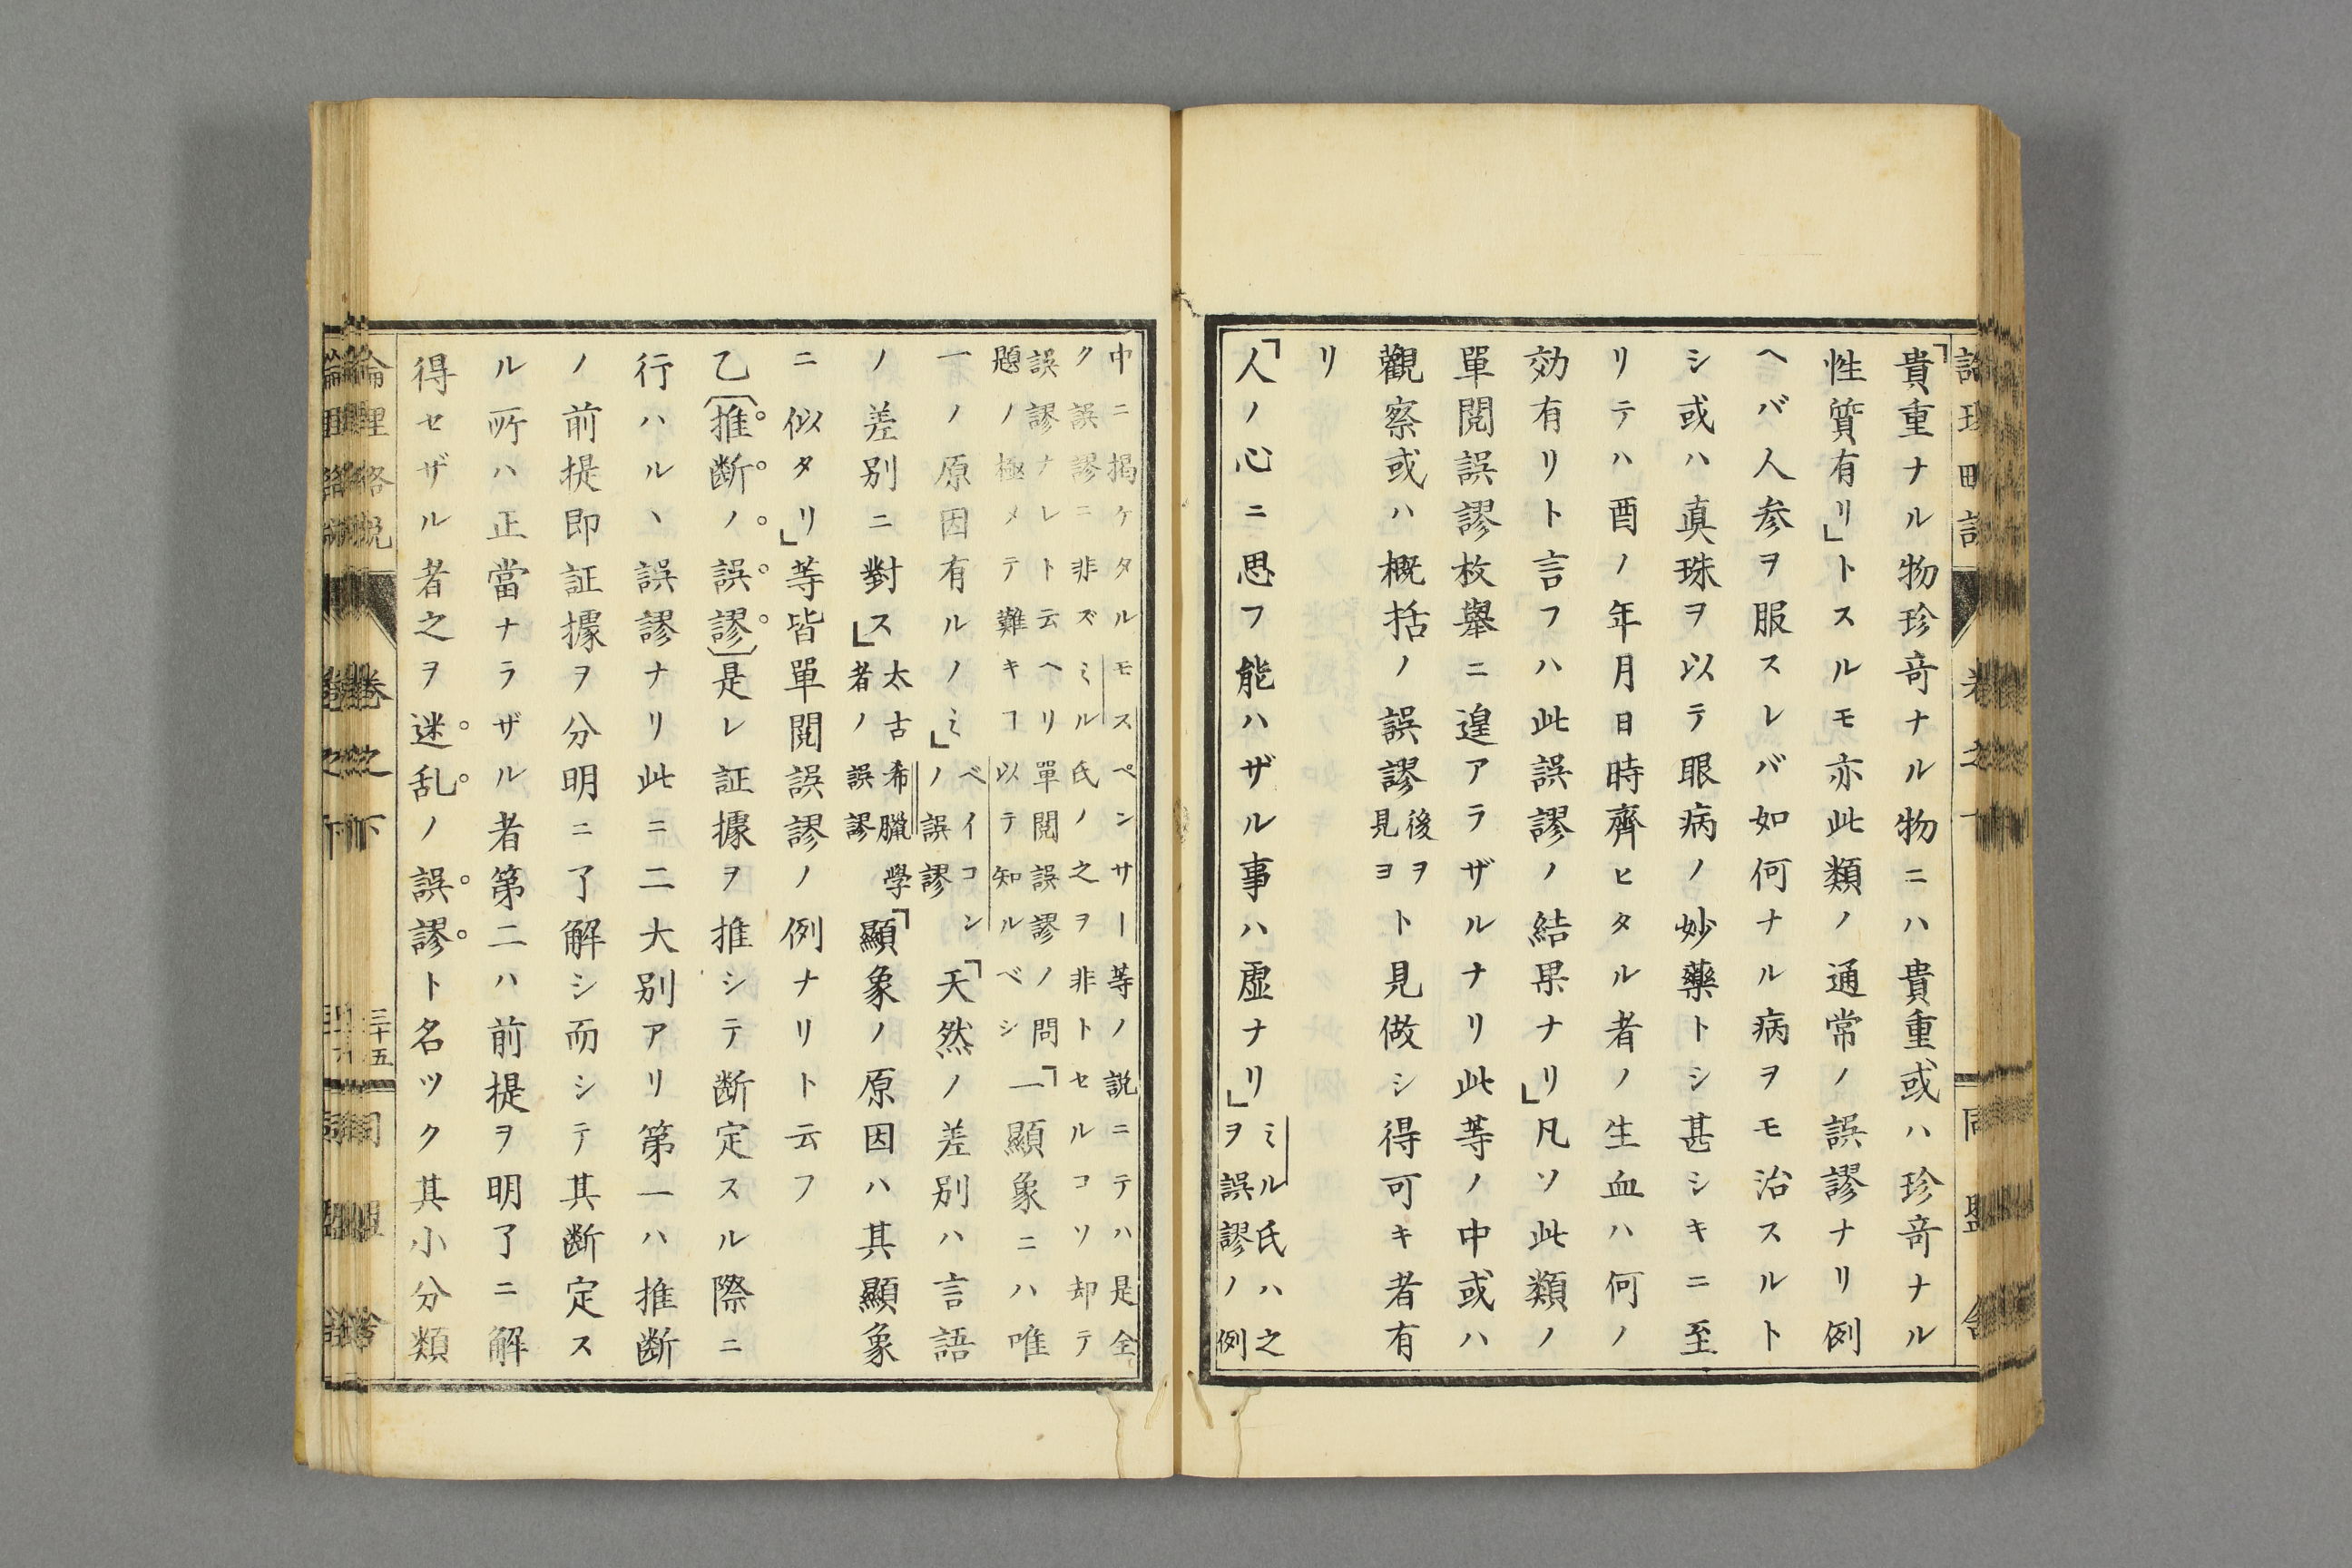 「貴重ナル物珍奇ナル物ニハ貴重或ハ珍奇ナル
性質有リ」トスルモ亦此類ノ通常ノ誤謬ナリ例
ヘバ人参ヲ服スレバ如何ナル病ヲモ治スルト
シ或ハ真珠ヲ以テ眼病ノ妙藥トシ甚シキニ至
リテハ酉ノ年月日時齊ヒタル者ノ生血ハ何ノ
効有リト言フハ此誤謬ノ結果ナリ」凡ソ此類ノ
單閲誤謬枚舉ニ遑アラザルナリ此等ノ中或ハ
觀察或ハ概括ノ誤謬後ヲ見ヨト見做シ得可キ者有
リ
「人ノ心ニ思フ能ハザル事ハ虛ナリ」ミル氏ハ之ヲ誤謬ノ例
中ニ掲ケタルモスペンサー等ノ説ニテハ是全
ク誤謬ニ非ズミル氏ノ之ヲ非トセルコソ却テ
誤謬ナレト云ヘリ單閲誤謬ノ問
題ノ極メテ難キヿ以テ知ルベシ「一顯象ニハ唯
一ノ原因有ルノミ」ベイコンノ誤謬「天然ノ差別ハ言語
ノ差別ニ對ス」太古希臘學者ノ誤謬「顯象ノ原因ハ其顯象
ニ似タリ」等皆單閲誤謬ノ例ナリト云フ
乙〔推断ノ誤謬〕是レ証據ヲ推シテ断定スル際ニ
行ハルヽ誤謬ナリ此ニ二大別アリ第一ハ推断
ノ前提即証據ヲ分明ニ了解シ而シテ其断定ス
ル所ハ正當ナラザル者第二ハ前提ヲ明了ニ解
得セザル者之ヲ迷乱ノ誤謬ト名ツク其小分類
論理略説 卷之下 三十五 同盟舎